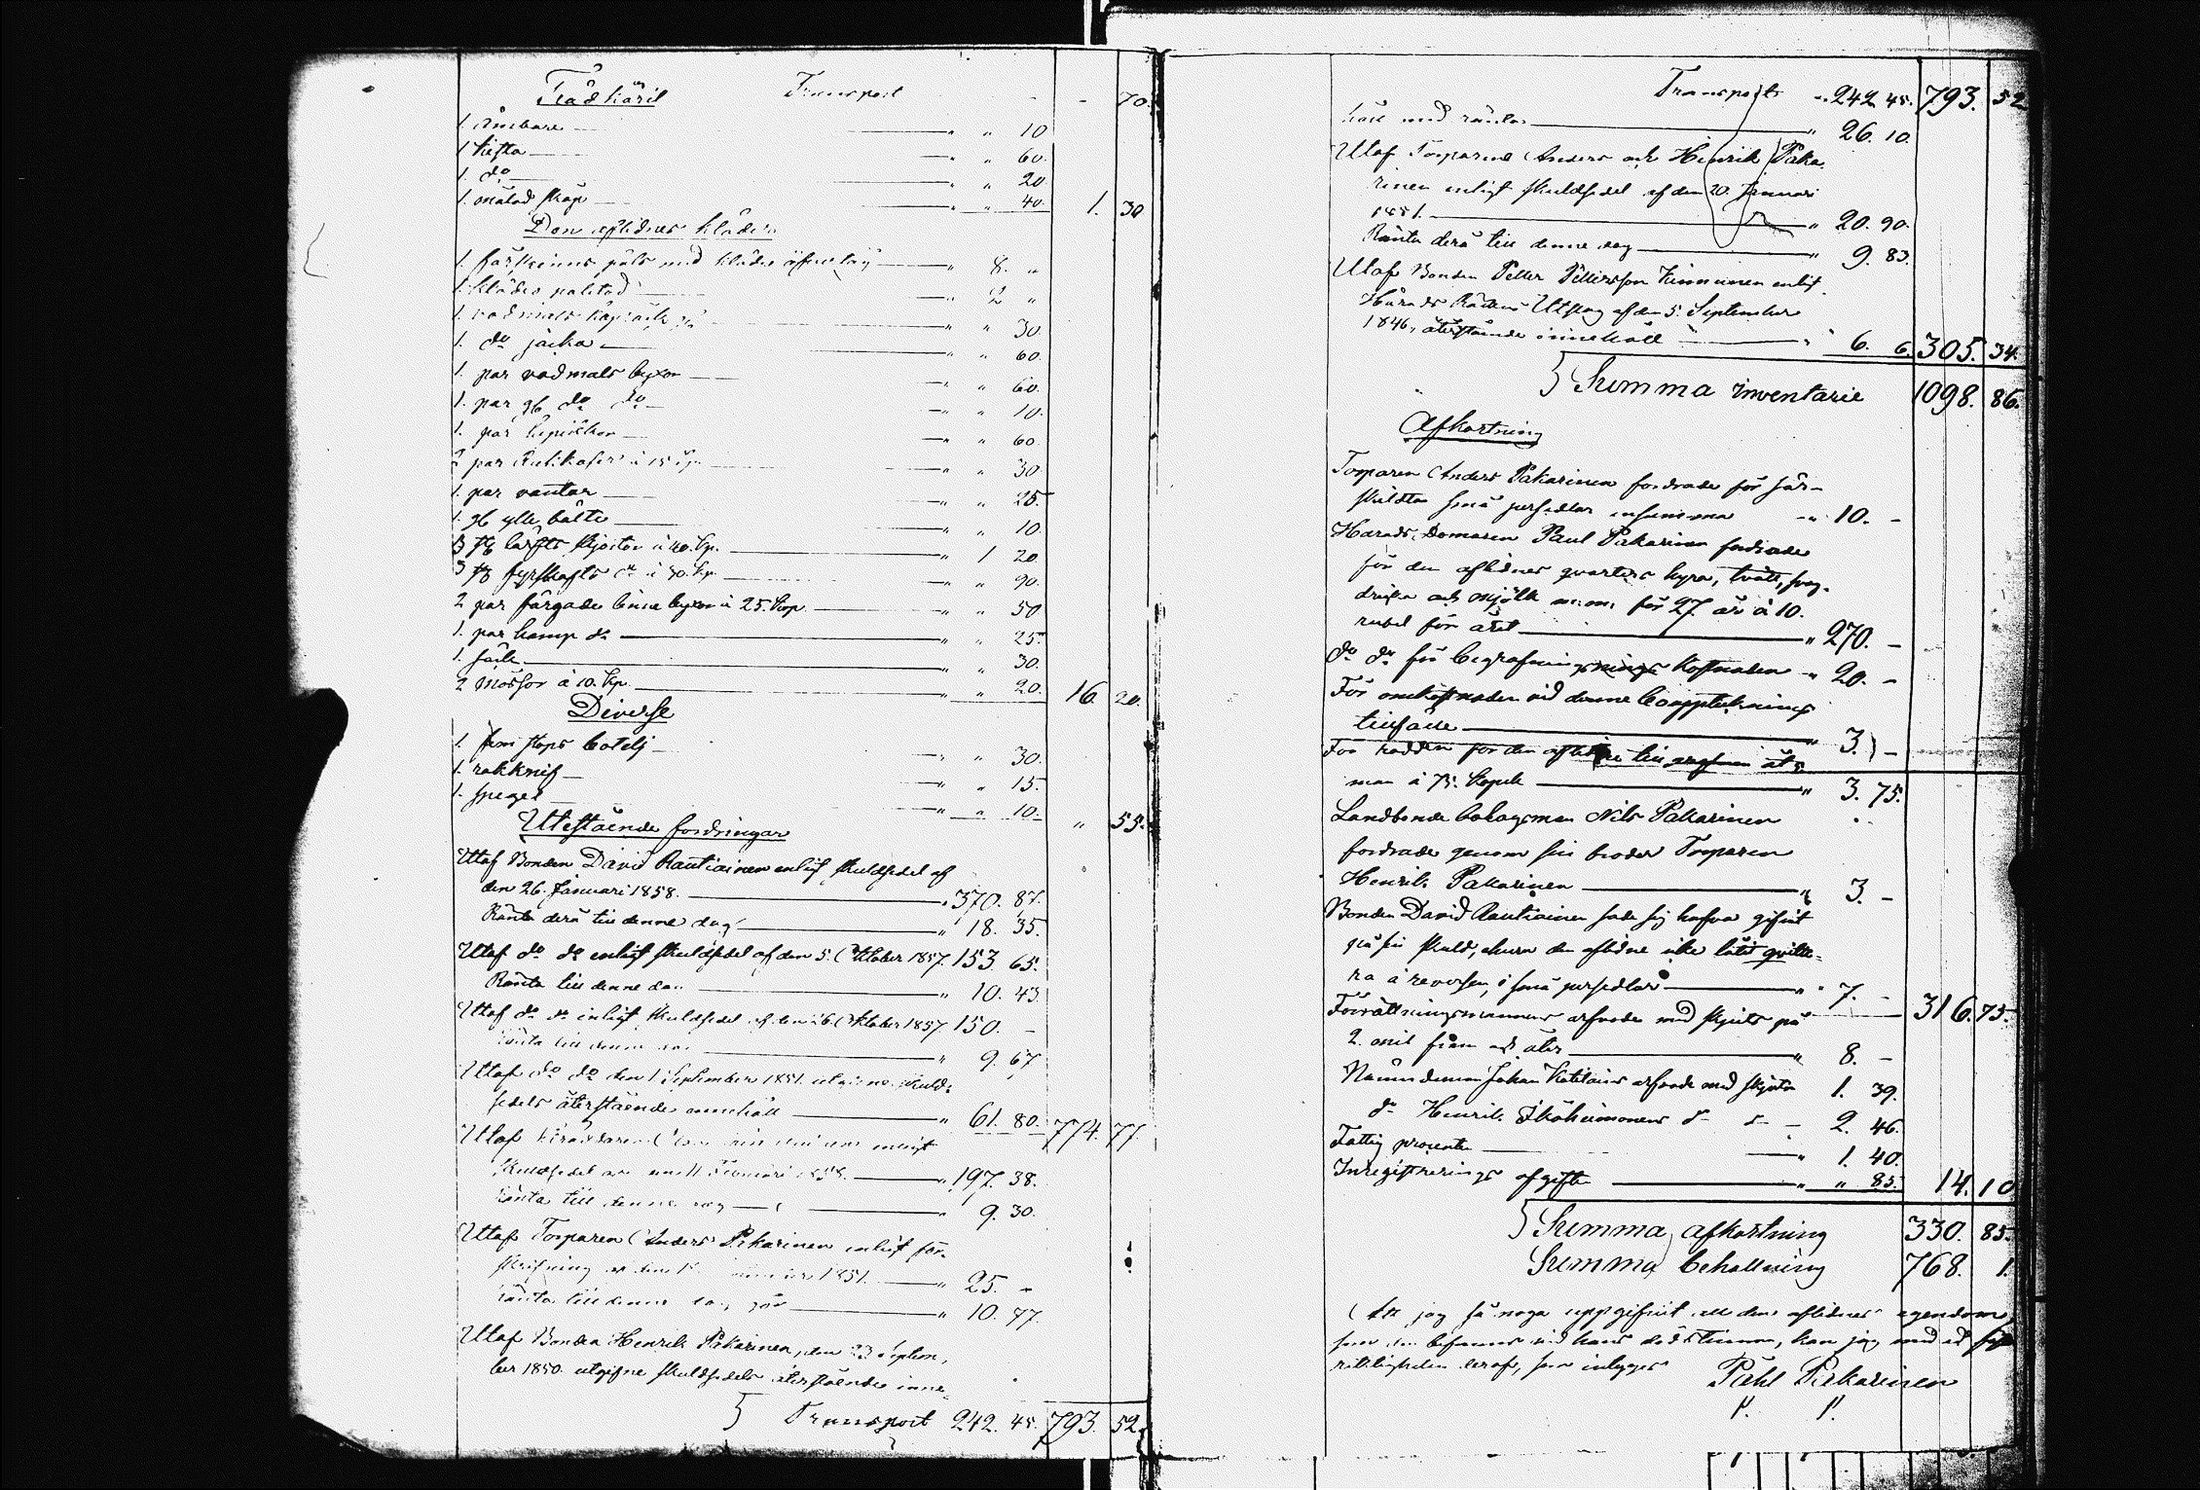 Trädkäril Transport - - 70.
1. Ämbare " " 10
1 kista " " 60.
1. do " " 20
1. målad skåp " " 40. 1. 30
Den aflidnes kläder
1. fårskinns päls med klädes öfvertyg " 8. "
1. klädes paletod " 2 "
1. vadmals " " 30
1. do jacka " " 60.
1. par vadmals byxor " " 60.
1. par gb. do do " " 10.
1. par " " 60
2 par à 15 kp. " " 30
1. par vantar " " 25.
1. gb ylle bälte " " 10.
3 st lärfts skjortor à 40. kp. " 1 20
3 st fyrskafts do à 30. kp " " 90.
2 par färgade linne byxor à 25. kop. " " 50
1. par hamp do " " 25.
1. säck " " 30.
2 mössor à 10. kp. " " 20. 16. 20.
Diverse
1. fem stops botelj " " 30.
1. rakknif " " 15.
1. spegel " " 10. " 55.
Utestående fordringar
Utaf Bonden David Rautiainen enligt skuldsedel af
den 26. Januari 1858. " 370. 87.
Ränta derå till denne dag " 18. 35.
Utaf do do enligt skuldsedel af den 5. Oktober 1857. 153. 65.
Ränta till denne dag " 10. 43.
Utaf do do enligt skuldsedel af den 26. Oktober 1857. 150. -
Ränta till denne dag " 9. 67
Utaf do do den 1 September 1851. utgifne skuld-
sedels återstående innehåll " 61. 80. 774. 77.
Utaf enligt
skuldsedel af den 11 Februari 1858. " 197. 38.
Ränta till denne dag " 9. 30.
Utaf Torparen Anders Pakarinen enligt för-
skrifning af den 1851. " 25. -
Ränta till denne dag gör " 10. 77.
Utaf Bonden Henrik Pakarinen, den 23 Septem-
ber 1850. utgifne skuldsedels återstående inne-
Transport 242. 45. 793. 52.
Transport " 242 45. 793. 52
håll med räntor " 26. 10.
Utaf Torparene Anders och Henrik Paka-
rinen enligt skuldsedel af den 20. Januari
1851. " 20. 90.
Ränta derå till denne dag " 9. 83.
Utaf Bonden Petter Pettersson Kinnunen enligt
Härads Rättens Utslag af den 5. September
1846, återstående innehåll " 6. 6. 305. 34.
Summa inventarie 1098. 86.
Afkortning
Torparen Anders Pakarinen fordrade för sär-
skildta små persedlar insumma " 10. -
Härads Domaren Paul Pakarinen fordrade
för den aflidnes qvarters hyra, tvätt, svag-
dricka och mjölk m: m: för 27 år à 10.
rubel för året " 270. -
do do för begrafnings kostnaden " 20. -
För omkostnaden vid denne bouppteknings
tillfälle " 3. -
För för den till åt 5
man à 75. kopek " 3. 75.
Landbonde bolagsman Nils Pakarinen
fordrade genom sin broder Torparen
Henrik Pakarinen " 3. -
Bonden David Rautiainen sade sig hafva gifvit
på sin skuld, den aflidne icke låtit qvitte-
ra å reversen, i små persedlar " 7. - 316. 75.
Förrättningsmannens arfvode med skjuts på
2. mil fram och åter " 8. -
Nämndeman Johan arfvode med skjuts 1. 39.
do Henrik Ikäheimonens do do 2. 46.
Fattig procente " 1. 40.
Inregistrerings afgifte " " 85. 14. 10
Summa afkortning 330. 85.
Summa behållning 768. 1.
Att jag så noga uppgifvit all den aflidnes egendom,
som den befanns vid hans dödstimma, kan jag med ed
riktigheten deraf, som intygar Påhl Pakarinen